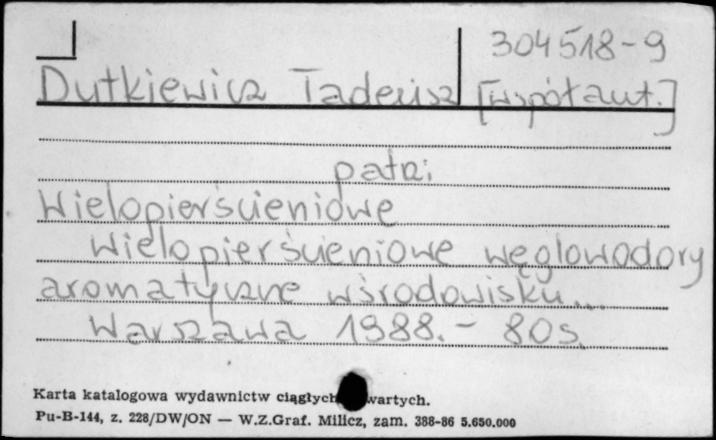 304518-9
Dutkiewicz Tadeusz [współaut.]
patrz:
Wielopierścieniowe
Wielopierścieniowe węglowodory
aromatyczne w środowisku...
Warszawa 1988. - 80 s.
Karta katalogowa wydawnictw ciągłych wartych.
Pu-B-144, z. 228/DW/ON — W.Z.Graf. Milicz, zam. 388-86 5.650.000